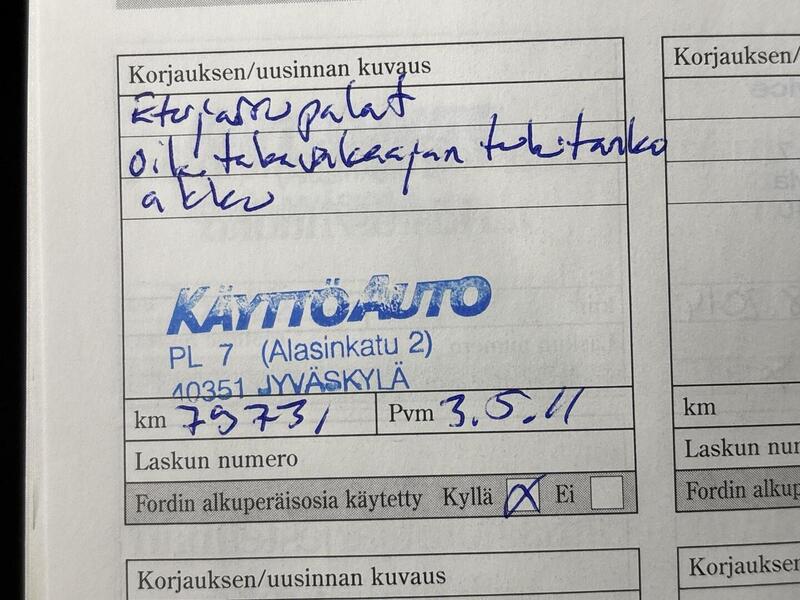 Korjauksen/uusinnan kuvaus
Etujarrupalat
oik. takavakaajan tukitanko
akku
KÄYTTÖAUTO
PL 7 (Alasinkatu 2)
40351 JYVÄSKYLÄ
km 79731
Pvm 3.5.11
Laskun numero
Fordin alkuperäisosia käytetty Kyllä X Ei
Korjauksen/uusinnan kuvaus
Korjauksen/
km
Laskun nu
Fordin alkup
Korjaukse